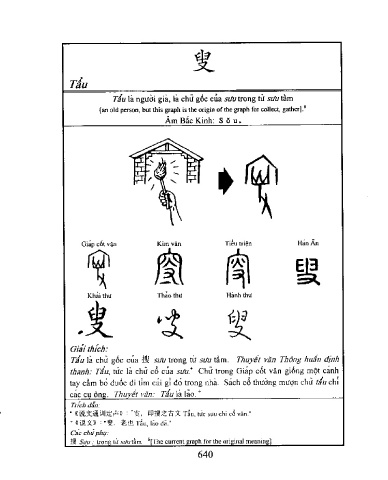 叟
Tẩu
Tẩu là người già, là chữ gốc của sưu trong từ sưu tầm
[an old person, but this graph is the origin of the graph for collect, gather].ᵇ
Âm Bắc Kinh: Sōu.
Giáp cốt văn Kim văn Tiểu triện Hán Ấn
Khải thư Thảo thư Hành thư
叟
Giải thích:
Tẩu là chữ gốc của 搜 sưu trong từ sưu tầm. Thuyết văn Thông huấn định
thanh: Tẩu, tức là chữ cổ của sưu.ᵃ Chữ trong Giáp cốt văn giống một cánh
tay cầm bó đuốc đi tìm cái gì đó trong nhà. Sách cổ thường mượn chữ tẩu chỉ
các cụ ông. Thuyết văn: Tẩu là lão.ᵃ
Trích dẫn:
搜之古文 Tẩu, tức sưu chi cổ văn."
老也 Tẩu, lão dã."
Các chú phụ:
搜 Sưu: trong từ sưu tầm ᵇ[The current graph for the original meaning]
640